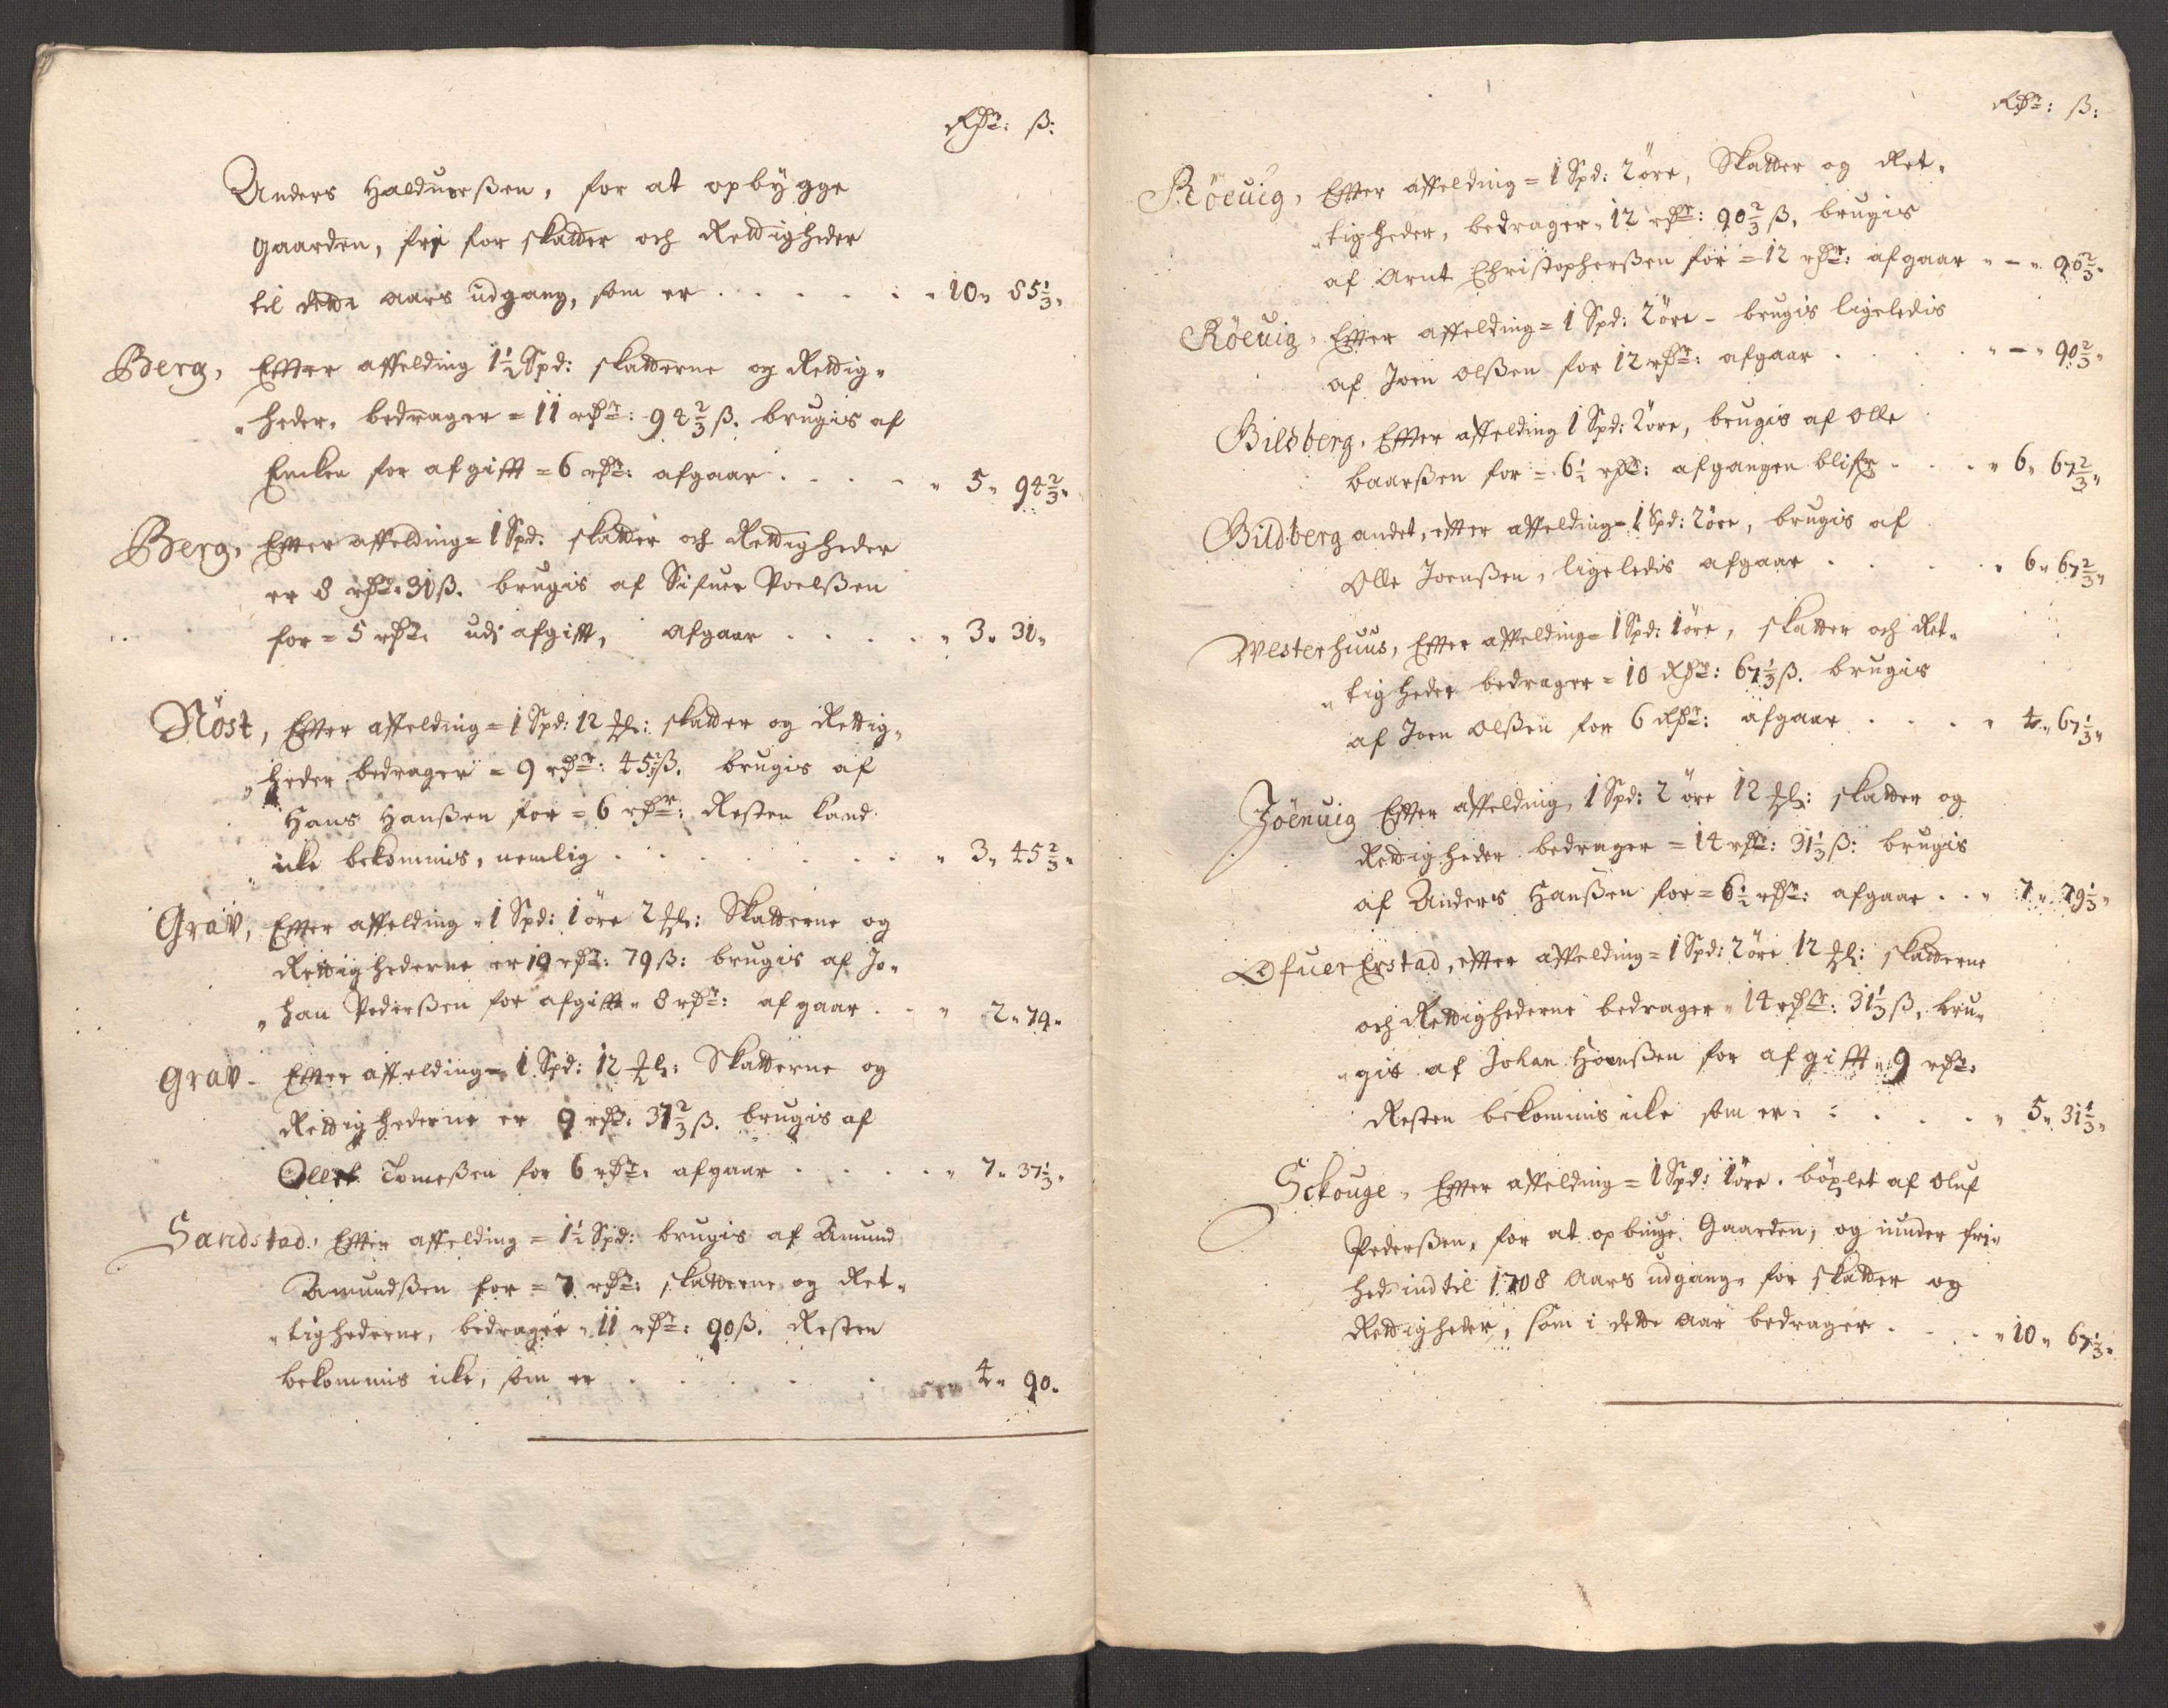 Rdr: ß:
Anders Haldurßen, for at opbÿgge
gaarden, frj for skatter och Rettigheder
til dette aars udgang, som er . . . . . . „ 10„ 85⅓„
Berg, Efter affelding 1½ Spd: skatterne og Rettig„
„heder, bedrager = 11 rdr: 94⅔ ß. brugis af
Encken for afgifft = 6 rdr: afgaar . . . . „ 5„ 94⅔„
Berg, Efter affelding = 1 Spd: skatter och Rettigheder
er 8 rdr: 31 ß. brugis af Sifuer Poelßen
for = 5 rdr: udj afgift, afgaar . . . . . „ 3„ 31„
Nöst, Efter affelding = 1 Spd: 12 ℔: skatter og Rettig„
„heder bedrager = 9 rdr: 45⅔ ß. brugis af
Hans Hanßen for = 6 rdr: Resten kand
icke bekommis, nemlig . . . . . . . „ 3„ 45⅔„
Grav, Efter affelding „ 1 Spd: 1 öre 2 ℔: Skatterne og
Rettighederne er 10 rdr: 79 ß: brugis af Jo„
„han Pederßen for afgifft „ 8 rdr: afgaar . . „ 2„ 79„
Grav – Efter affelding = 1 Spd: 12 ℔: Skatterne og
Rettighederne er 9 rdr: 37⅔ ß. brugis af
Ollef Tomeßen for 6 rdr: afgaar . . . . . „ 7„ 37⅓„
Sandstad. Efter affelding = 1½ Spd: brugis af Amund
Amundßen for = 7 rdr: skatterne og Ret„
„tighederne, bedrager „ 11 rdr: 90 ß. Resten
bekommis icke, som er . . . . . 4„ 90„
Rdr: ß:
Röevig, Efter affelding = 1 Spd: 2 öre, Skatter og Ret„
„tigheder, bedrager „ 12 rdr: 90⅔ ß, brugis
af Arnt Christopherßen for = 12 rdr: afgaar „ – „ 90⅔„
Röevig, Efter affelding = 1 Spd: 2 öre – brugis ligeledis
af Joen Olßen for 12 rdr: afgaar . . . . . „ – „ 90⅔„
Bilsberg, Efter affelding 1 Spd: 2 öre, brugis af Olle
baarßen for = 6½ rdr: afgangen blifr . . . „ 6„ 67⅔„
Bildberg andet, efter affelding = 1 Spd: 2 öre, brugis af
Olle Joenßen, ligeledis afgaar . . . . . „ 6„ 67⅔„
Westerhuus, Efter affelding = 1 Spd: 1 öre, skatter och Ret„
„tigheder bedrager = 10 Rdr: 67⅓ ß. brugis
af Joen Olßen for 6 Rdr: afgaar . . . . „ 4„ 67⅓„
Jöenvig Efter affelding, 1 Spd: 2 öre 12 ℔: skatter og
Rettigheder bedrager = 14 rdr: 31⅓ ß: brugis
af Anders Hanßen for = 6½ rdr: afgaar . . „ 7„ 79⅓„
Ofuer Erstad, efter affelding = 1 Spd: 2 öre 12 ℔: skatterne
och Rettighederne bedrager „ 14 rdr: 31⅓ ß, bru„
„gis af Johan Hoenßen for afgifft „ 9 rdr:
Resten bekommis icke som er : . . . . „ 5„ 31⅓„
Sckouge, Efter affelding = 1 Spd: 1 öre. böxlet af Oluf
Pederßen, for at opbinge Gaarden, og niuder fri„
hed indtil 1708 Aars udgang, for skatter og
Rettigheder, som i dette aar bedrager . . . „ 10„ 67⅓„